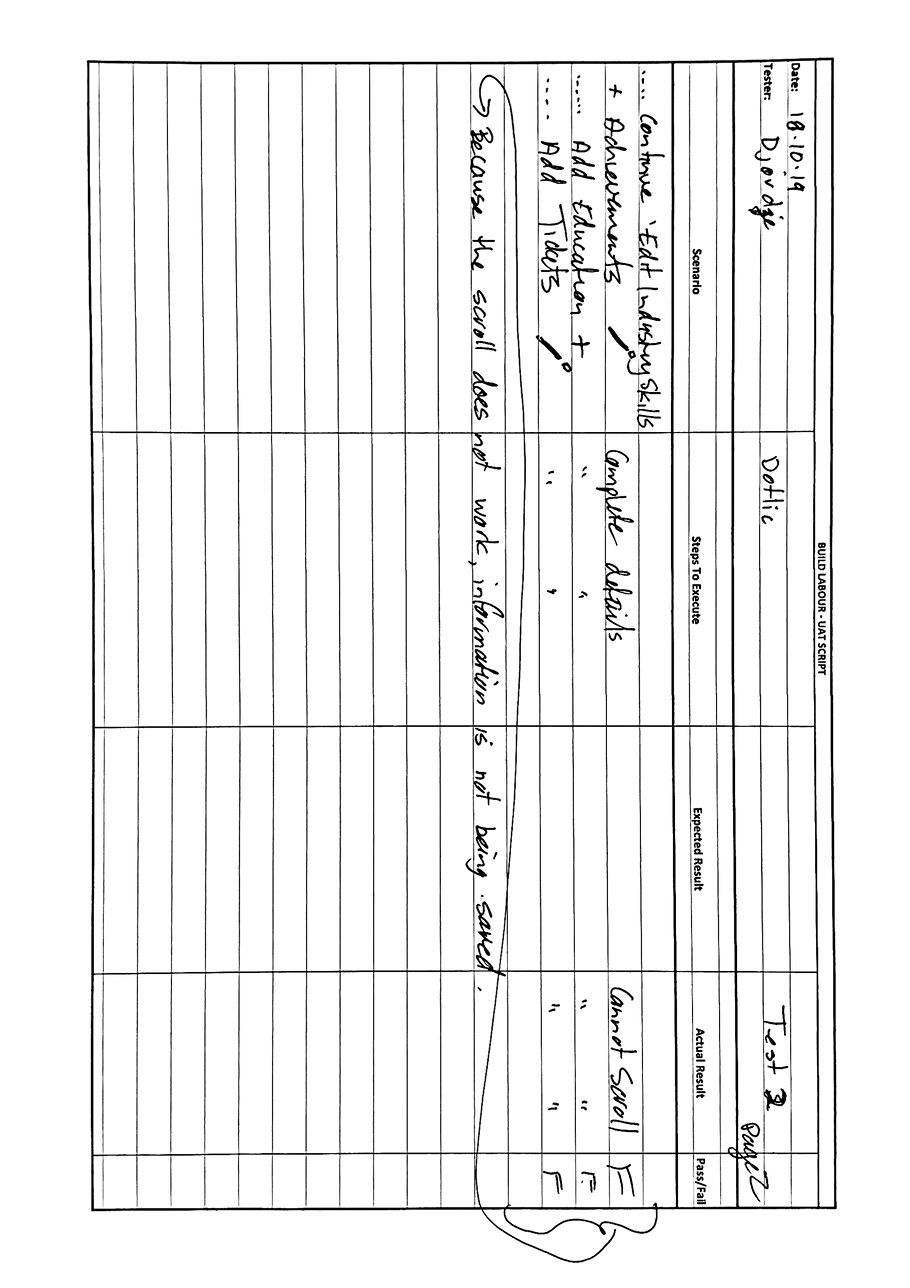 BUILD LABOUR - UAT SCRIPT
Date: 18.10.19
Tester: Djordje Dotlic Test 2
Page 2
Scenario Steps To Execute Expected Result Actual Result Pass/Fail
.... Continue 'Edit Industry Skills
+ Achievements Complete details Cannot Scroll F
...... Add Education + " " " " F
.... Add Tickets " " " " F
Because the scroll does not work, information is not being saved.